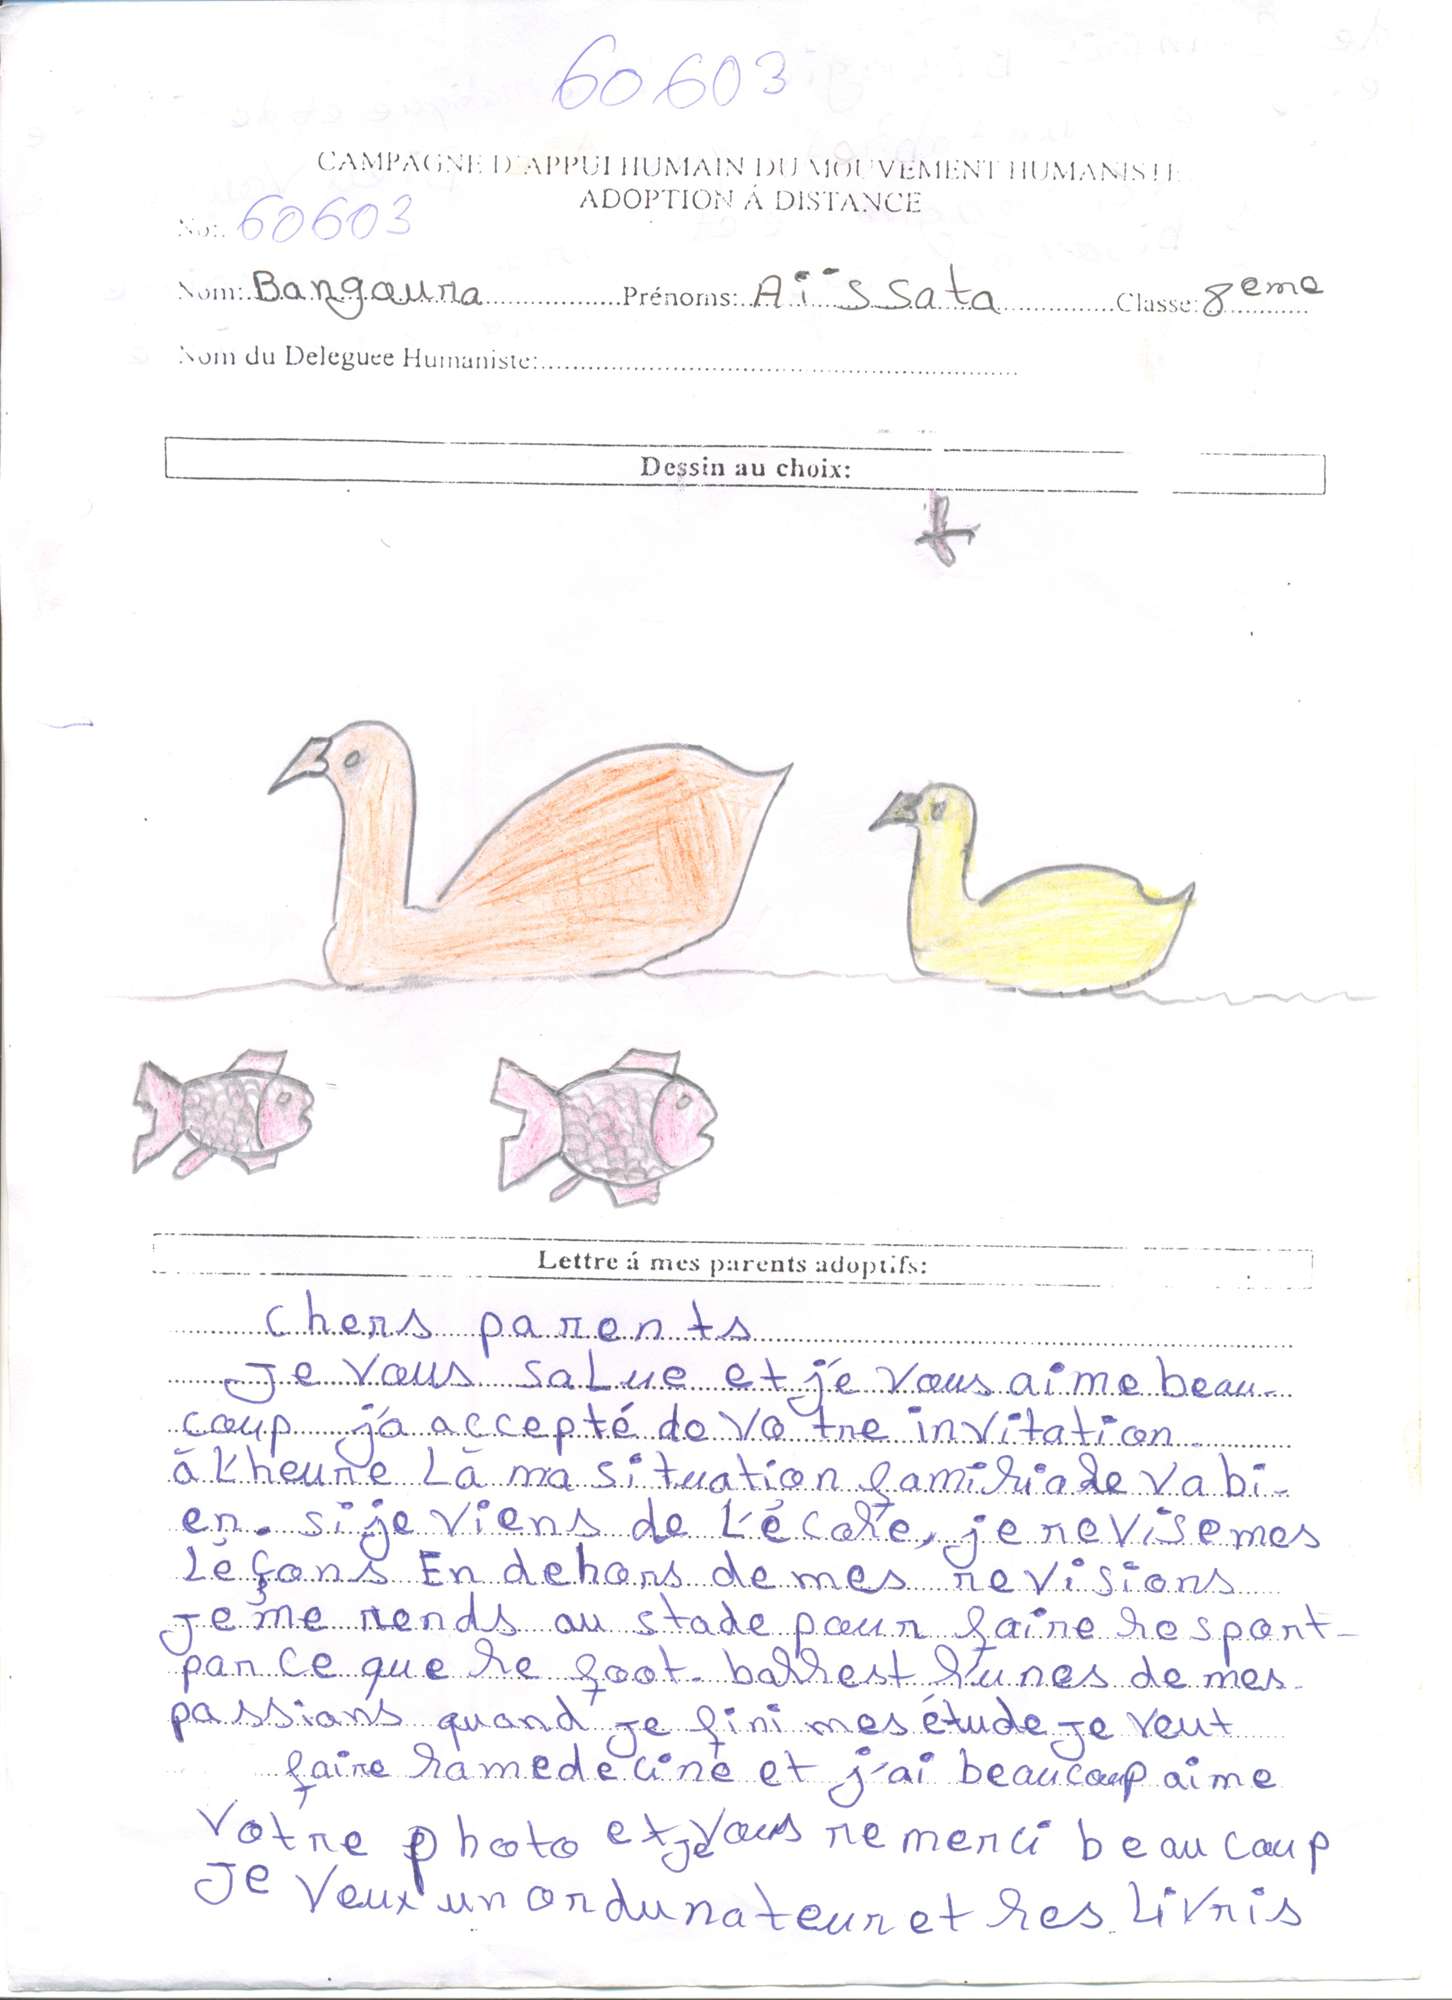 60603
CAMPAGNE D'APPUI HUMAIN DU MOUVEMENT HUMANISTE
ADOPTION Á DISTANCE
No: 60603
Nom: Bangoura Prénoms: Aïssata Classe: 8eme
Nom du Deleguee Humaniste:
Dessin au choix:
Lettre á mes parents adoptifs:
chers parents
Je vous salue et j'e vous aime beau-
coup j'a accepté de votre invitation
à l'heure là ma situation familiale va bi-
en. si je viens de l'école, je revise mes
léçons En dehors de mes revisions
Je me rends au stade pour faire le sport-
par ce que le foot-ball est l'unes de mes
passions quand je fini mes étude je veut
faire la medecine et j'ai beaucoup aime
votre photo et je vous remerci beaucoup
Je veux un ordunateur et les livris